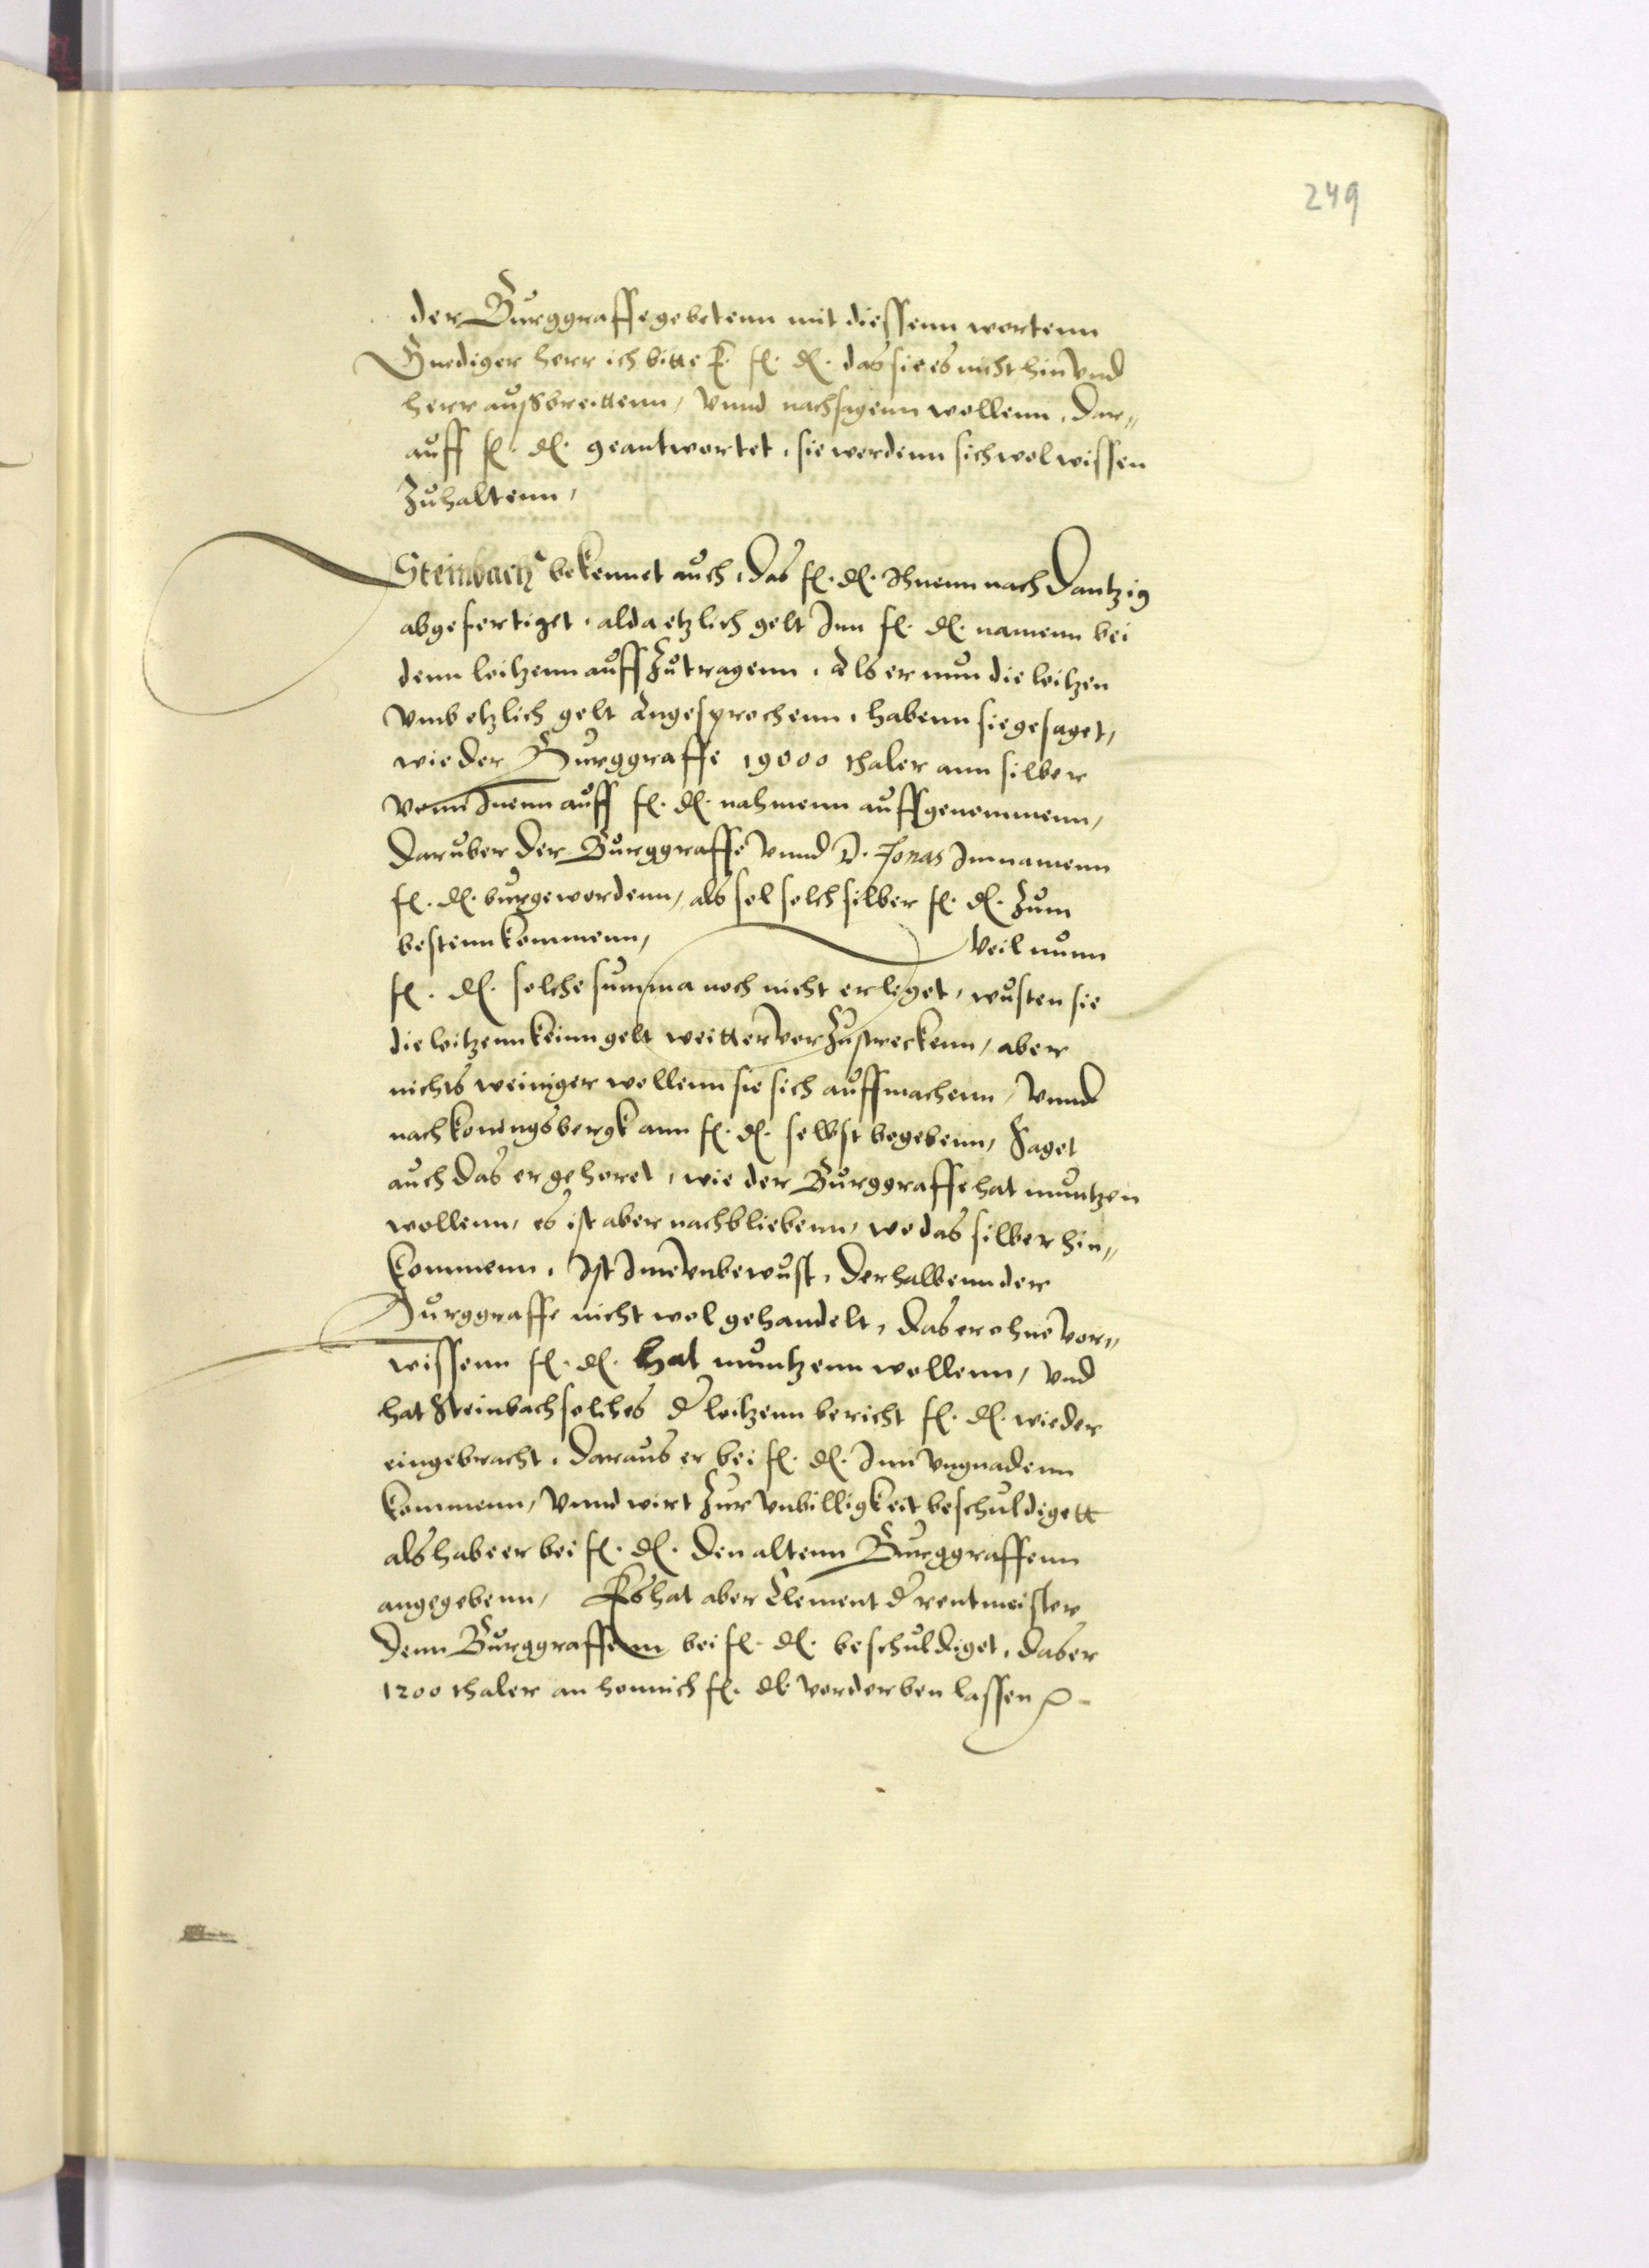 249
der Burggraffe gebetenn mit diessenn wortenn
Gnediger herr ich bitte E. f. d. das sie es nicht hin vnd
herr außbreittenn, vnnd nachsagenn wollenn, dar„
auff f. d. geantwortet, sie werdenn sich wol wissen
Zuhaltenn,
Steinbach bekennet auch, das f. d. Ihnenn nach Dantzig
abgefertiget, alda etzlich gelt Inn f. d. namenn bei
denn loitzenn auff Zutragenn, Als er nun die loitzen
vmb etzlich gelt Angesprochenn, habenn sie gesaget,
wie der Burggraffe 19000 thaler ann silber
vonn Inenn auff f. d. nahmenn auffgenommenn,
daruber der Burggraffe vnnd D. Jonas Im namenn
f. d. burge wordenn, als sol solch silber f. d. Zum
bestenn kommenn, Veil nunn
f. d. solche summa noch nicht erleget, wusten sie
die loitzenn keinn gelt weitter vor Zustreckenn, aber
nichts weiniger wollenn sie sich auffmachenn, vnnd
nach koningsbergk ann f. d. selbst begebenn, Saget
auch das er gehoret, wie der Burggraffe hat muntzen
wollenn, es ist aber nachbliebenn, wo das silber hin„
kommenn, Ist Ime vnbewust, derhalbenn der
Burggraffe nicht wol gehandelt, das er ohne vor„
wissenn f. d. hat muntzenn wollenn, vnd
hat Steinbach solches d loitzenn bericht f. d. wieder
eingebracht, daraus er bei f. d. Inn vngnadenn
kommenn, vnnd wirt Zur vnbilligkeit beschuldigett
als habe er bei f. d. den altenn Burggraffenn
angegebenn, Es hat aber Clement d rentmeister
denn Burggraffenn bei f. d. beschuldiget, das er
1200 thaler an honnich f. d. vorderben lassen